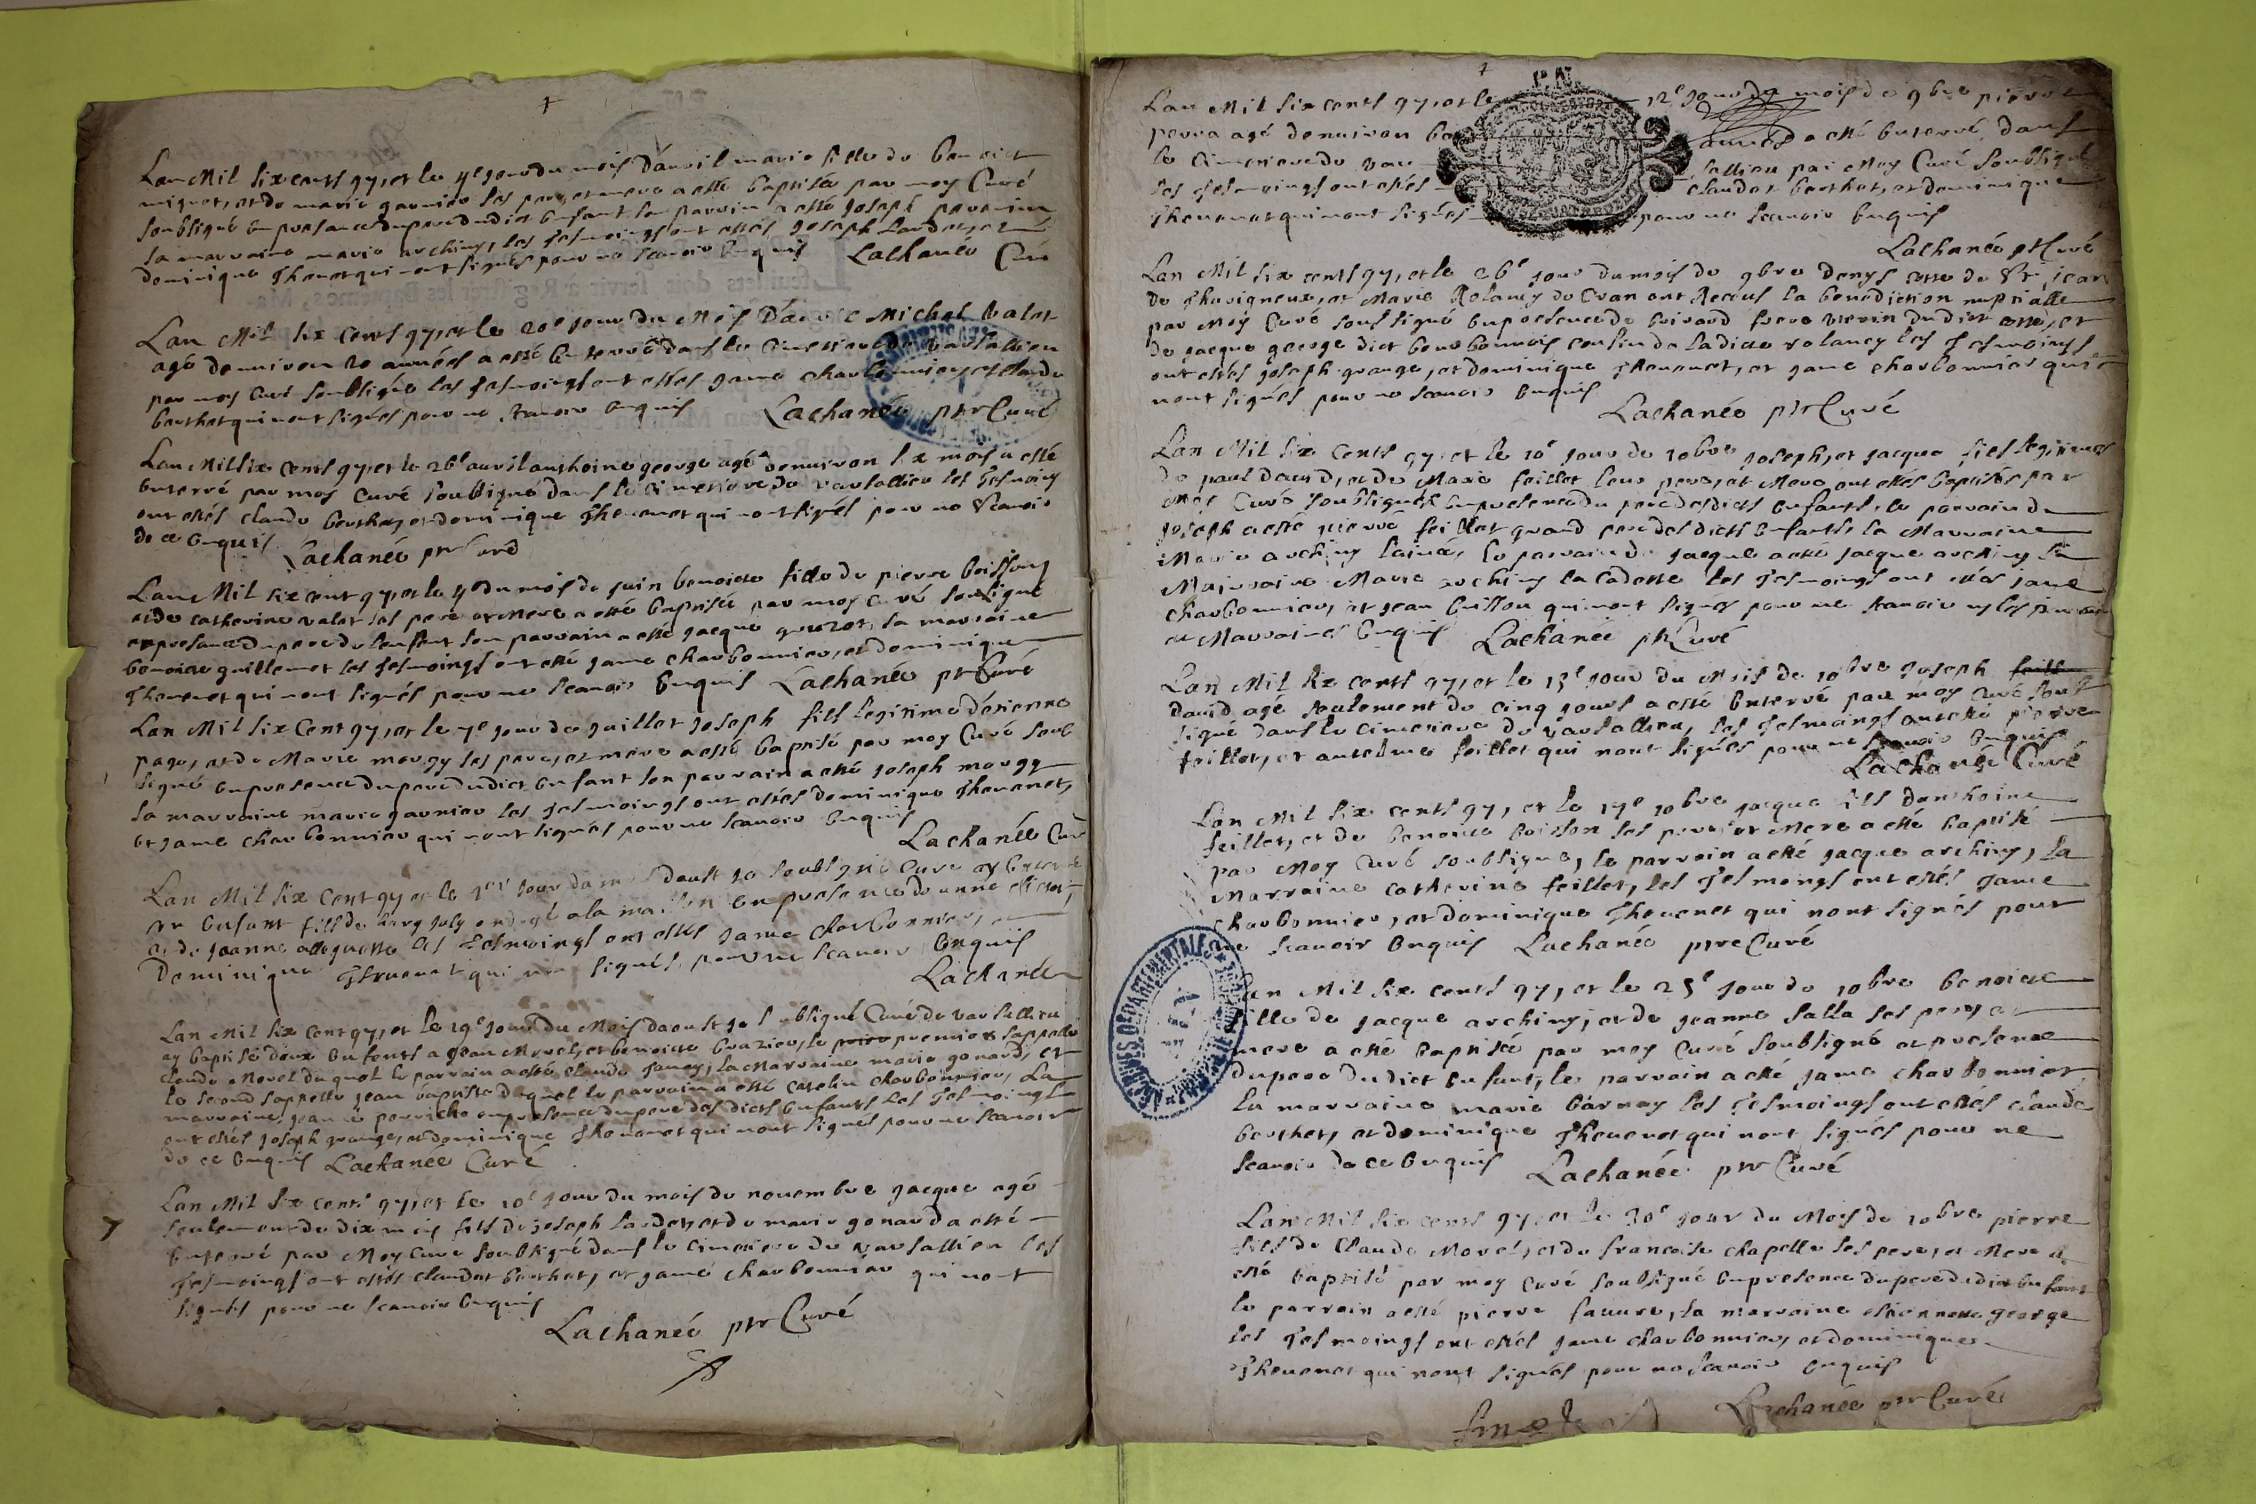 Lan Mil six cents 97, et le 4e jour du mois Dauril marie fille de benoict
miguet, et de marie garnier ses pere, et mere a esté baptisée par moy Curé
soubsigné en presance du pere dudict enfant son parrain a esté joseph
la marraine marie archiny, les tesmoings ont estés joseph lardet, et
dominique Theuenet qui nont signés pour ne scauoir enquis Lachanée Curé
Lan Mil six cents 97, et le 20e jour du Mois Dauril Michel valat
agé denuiron 20 années a esté enterré dans le Cimetiere de varsallieu
par moy Curé soubsigné les tesmoings ont estés jame charbonnier, et claude
berthet qui nont signés pour ne scauoir enquis Lachanée ptr Curé
Lan Mil six cents 97, et le 26e auril anthoine george agé denuiron six mois a esté
enterré par moy Curé soubsigné dans le Cimetiere de varsallieu les tesmoins
ont estés claude berthet, et dominique Theuenet qui nont signés pour ne scauoir
de ce enquis Lachanée ptr Curé
Lan Mil six cent 97, et le 9e du mois de juin benoicte fille de pierre boisson
et de catherine valat ses pere et mere a esté baptisée par moy curé soubsigné
en presance du pere de lenfant son parrain a esté jacque, la marraine
benoicte guillemet les tesmoings ont esté jame charbonnier, et dominique
Theuenet qui nont signés pour ne scauoir Enquis Lachanée ptr Curé
Lan Mil six Cent 97, et le 7e jour de juillet joseph fils legitime destienne
page, et de Marie morgy ses pere, et mere a esté baptisé par moy Curé soub
signé en presence du pere dudict enfant son parrain a esté joseph morgy
la marraine marie garnier les tesmoings ont estés dominique Theuenet,
et jame charbonnier qui nont signés pour ne scauoir enquis
Lachanée Curé
Lan Mil six Cent 97 et le jour du mois daoust je soubsigné Cure ay enterré
un enfant fils de july a la maison en presence de anne
et de jeanne les tesmoings ont estés jame charbonnier, et
Dominique Theuenet qui nont signés pour ne scauoir enquis
Lachanée
Lan Mil six Cent 97, et le 19e jour du Mois daoust je soubsigné Curé de varsallieu
ay baptisé deux enfants a jean Morel, et benoicte brazier, le premier sappelle
claude Morel duquel le parrain a esté claude, la Marraine marie gonard, et
le second sappelle jean baptiste duquel le parrain a esté catelin charbonnier, La
marraine en presence du pere des dicts enfants Les Tesmoings
ont estés joseph grange, et dominique Theuenet qui nont signés pour ne scauoir
de ce enquis Lachanée Curé
Lan Mil six cents 97, et le 10e jour du mois de nouembre jacque agé
seulement de dix mois fils de joseph lardet, et de marie gonard a esté
enterré par Moy Cure soubsigné dans le cimetiere de varsallieu les
Tesmoings ont estés claudet berthet, et jame charbonnier qui nont
signés pour ne scauoir enquis
Lachanée ptr Curé
Lan Mil six cents 97, et le 12e jour du mois de 9bre pierre
perra agé denuiron années a esté enterré dans
le Cimetiere de var sallieu par Moy Curé soubsigné
les tesmoings ont estés claudet berthet, et dominique
Theuenet qui nont signés pour ne scauoir enquis
Lachanée ptr Curé
Lan Mil six cents 97, et le 26e jour du mois de 9bre denys de St jean
de Thurigneux, et Marie Rolancy de Cran ont Receus la benediction nuptialle
par Moy Curé soussigné en presence de frere dudict, et
de jacque george dict bourbonnois cousin de ladicte rolancy les Tesmoings
ont estés joseph grange, et dominique Theuenet, et jame charbonnier qui
nont signés pour ne scauoir enquis Lachanée ptr Curé
Lan Mil six Cents 97, et le 10e jour de 10bre joseph, et jacque fils legitimes
de paul dauid, et de Marie feillet leur pere, et Mere ont estés baptisés par
Moy Curé soubsigné en presence du pere desdicts enfants, le parrain de
joseph a esté pierre feillet grand pere desdicts enfants la Marraine
Marie archiny lainée, le parrain de jacque a esté jacque archiny la
Marraine Marie archiny la cadette les Tesmoings ont estés jame
charbonnier, et jean buisson qui nont signés pour ne scauoir ny les parrains
et Marraines enquis Lachanée ptr Curé
Lan Mil six cents 97, et le 15e jour du Mois de 10bre joseph
dauid agé seulement de cinq jours a esté enterré par moy curé soub
signé dans le cimetiere de varsallieu, les Tesmoings ont esté pierre
feillet, et antelme feillet qui nont signés pour ne scauoir enquis
Lachanée Curé
Lan Mil six cents 97, et le 17e 10bre jacque fils danthoine
feillet, et de benoicte boisson ses pere, et Mere a esté baptisé
par Moy Curé soubsigné, le parrain a esté jacque archiny, la
Marraine catherine feillet, les Tesmoings ont estés jame
charbonnier, et dominique Theuenet qui nont signés pour
ne scauoir enquis Lachanée ptre Curé
Lan Mil six cents 97, et le 25e jour de 10bre benoicte
fille de jacque archiny, et de jeanne salla ses pere, et
mere a esté baptisée par moy Curé soubsigné et presence
du pere dudict enfant, le parrain a esté jame charbonnier
la marraine marie barnay les Tesmoings ont estés claude
berthet, et dominique Theuenet qui nont signés pour ne
scauoir de ce enquis Lachanée ptr Curé
Lan Mil six cents 97, et le 30e jour du Mois de 10bre pierre
fils de Claude Morel, et de francoise chapelle ses pere, et Mere a
esté baptisé par moy Curé soubsigné en presence du pere dudict enfant
le parrain a esté pierre fauure, la marraine estiennette george
les Tesmoings ont estés jame charbonnier, et dominique
Theuenet qui nont signés pour ne scauoir enquis
Lachanée ptr Curé
ARCHIVES DEPARTEMENTALES